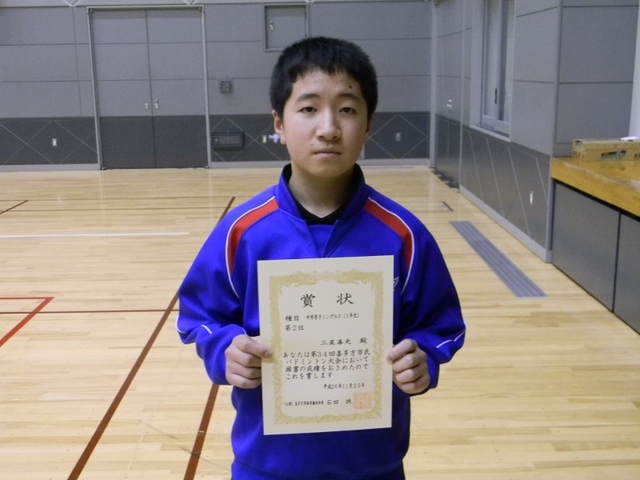 賞状
種目 中学男子シングルス(1年生)
第2位
殿
あなたは第34回喜多方市民
バドミントン大会において
頭書の成績をおさめたので
これを賞します
平成26年11月23日
石田